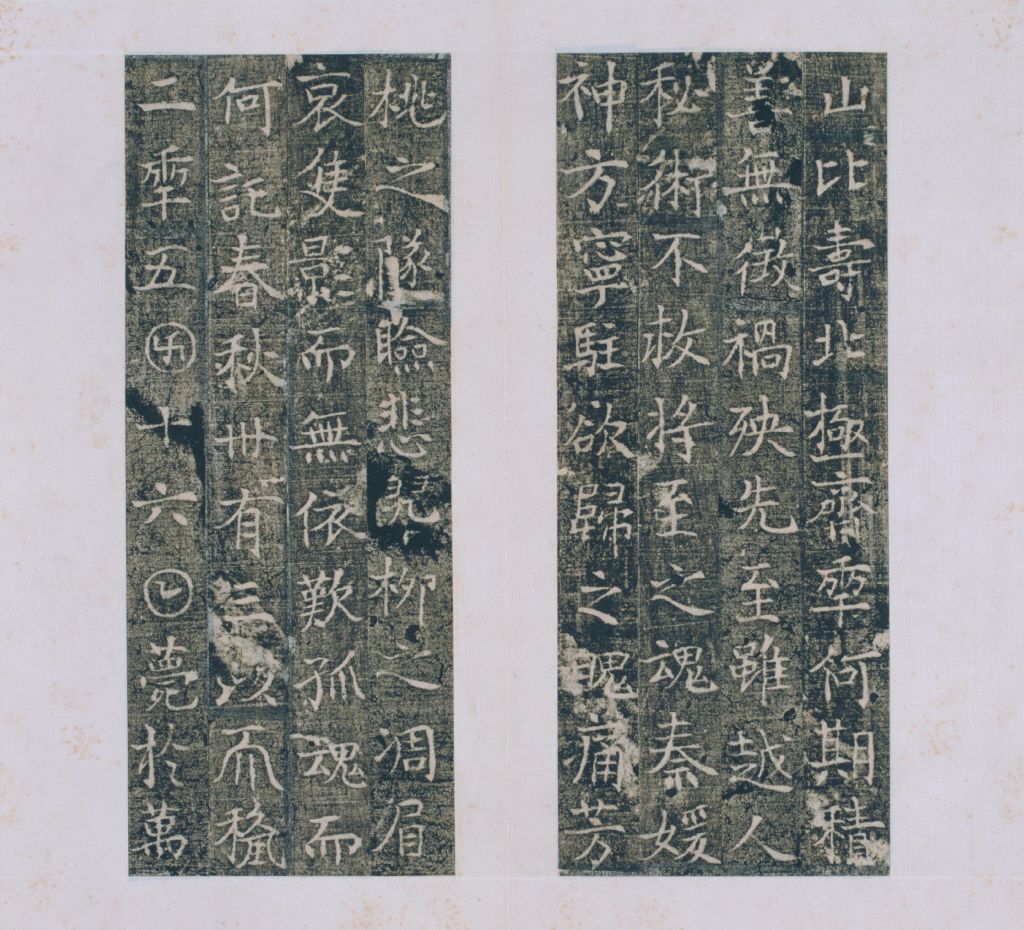 山比壽北極齊𠡦何期積
善無徵禍殃先至雖越人
秘術不救將至之魂秦媛
神方寧駐欲歸之魄痛芳
桃之墜瞼悲翠柳之凋眉
哀隻影而無依歎孤魂而
何託春秋卌有三以𠀑𥠢
二𠡦五囝十六𡆠薨於萬